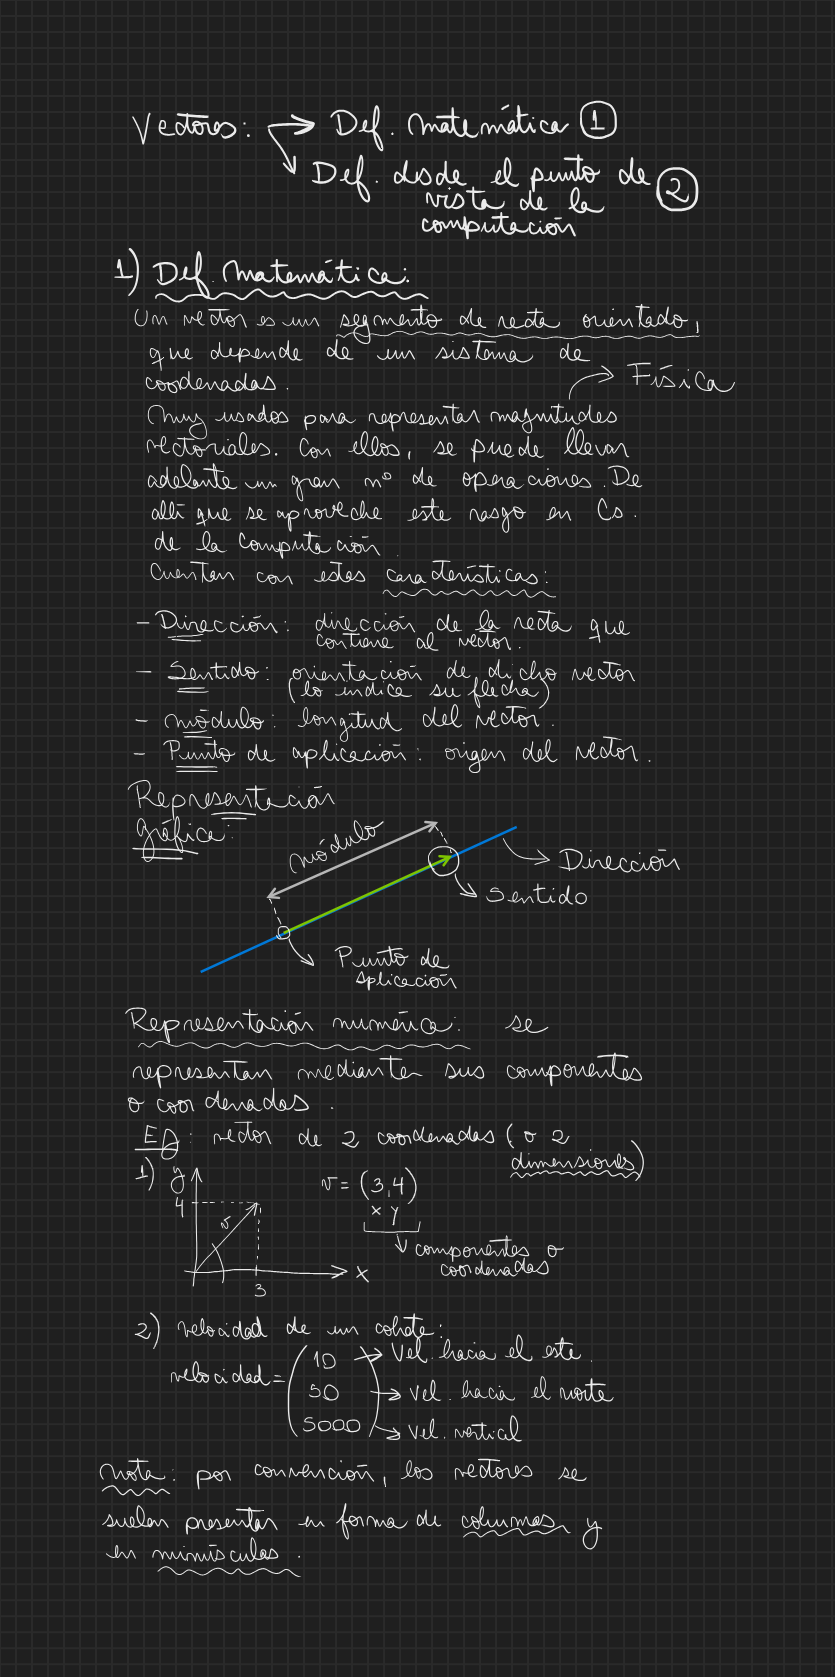 Vectores: → Def. matemática ①
Def. desde el punto de ②
vista de la
computación
1) Def. matemática:
Un vector es un segmento de recta orientado,
que depende de un sistema de
coordenadas.
Física
Muy usados para representar magnitudes
vectoriales. Con ellos, se puede llevar
adelante un gran nº de operaciones. De
allí que se aproveche este rasgo en Cs.
de la Computación.
Cuentan con estas características:
- Dirección: dirección de la recta que
contiene al vector.
- Sentido: orientación de dicho vector
(lo indica su flecha)
- módulo: longitud del vector.
- Punto de aplicación: origen del vector.
Representación
gráfica:
módulo
Dirección
Sentido
Punto de
Aplicación
Representación numérica: se
representan mediante sus componentes
o coordenadas.
Ej: vector de 2 coordenadas (o 2
dimensiones)
1) y
v = (3,4)
4
x y
v
componentes o
coordenadas
x
3
2) velocidad de un cohete:
velocidad = (10 → Vel. hacia el este.
50 → Vel. hacia el norte
5000) → Vel. vertical
Nota: por convención, los vectores se
suelen presentar en forma de columnas y
en minúsculas.